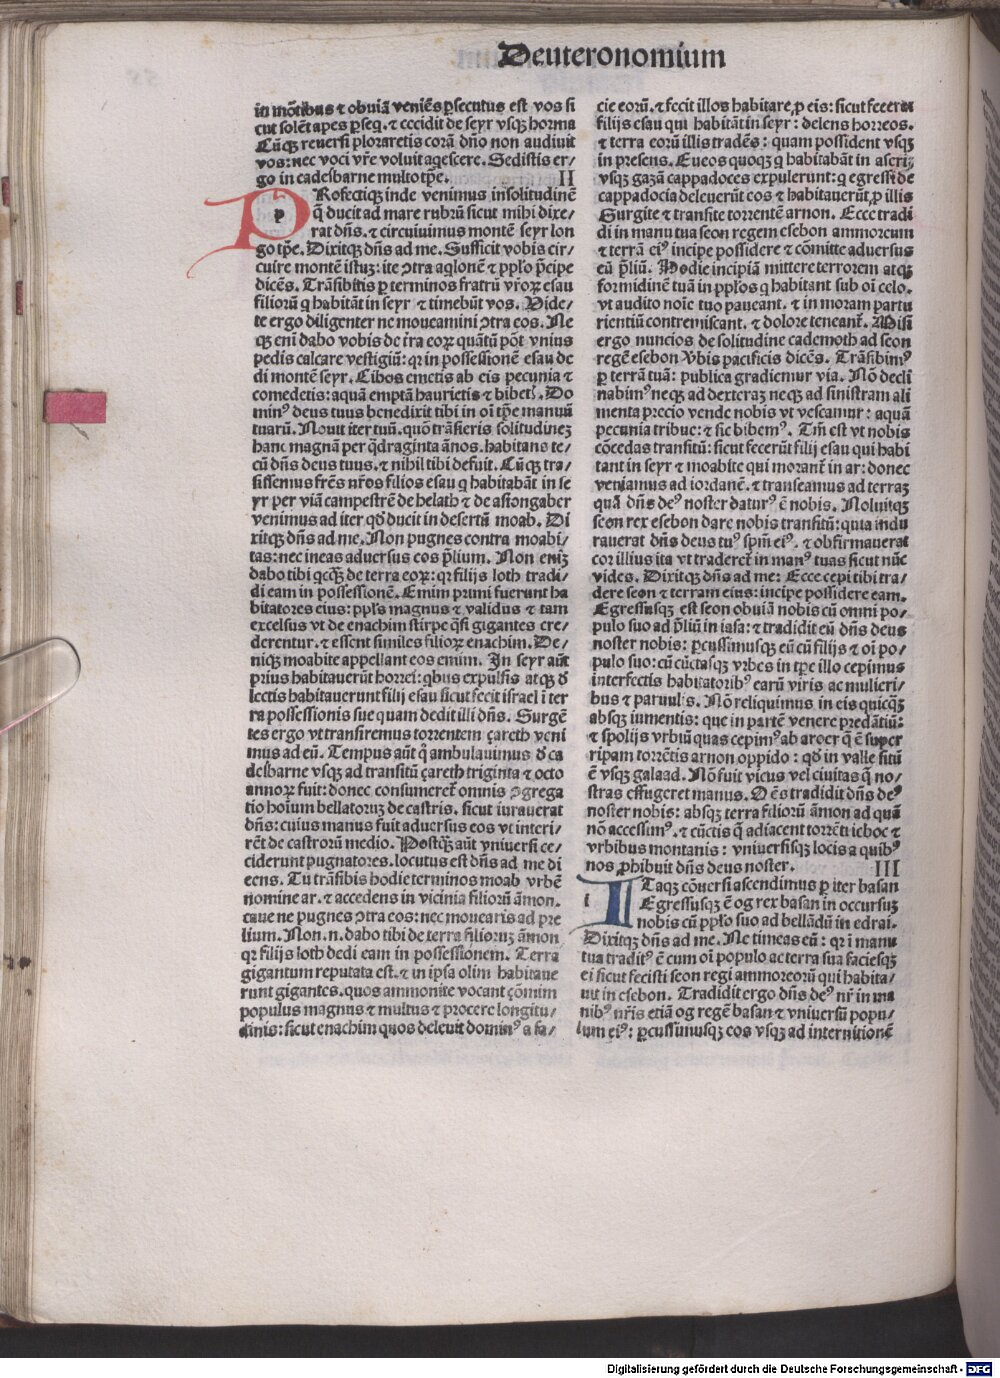 Deuteronomium
in mōtibus ⁊ obuiā veniēs ꝑsecutus est vos si
cut solēt apes ꝑseq. ⁊ cecidit de seyr vsqꝫ horma
Cūqꝫ reuersi ploraretis corā dn̄o non audiuit
vos: nec voci vr̄e voluit aqescere. Sedistis er/
go in cadesbarne multo tp̄e. II
P
p
Rofectiqꝫ inde venimus in solitudinē
q̄ ducit ad mare rubrū sicut mihi dixe/
rat dn̄s. ⁊ circuiuimus montē seyr lon
go tp̄e. Dixitqꝫ dn̄s ad me. Sufficit vobis cir/
cuire montē istuꝫ: ite ꝯtra aqlonē ⁊ pplo p̄cipe
dicēs. Trāsibitis ꝑ terminos fratrū vroꝝ esau
filiorū q habitāt in seyr ⁊ timebūt vos. Vide/
te ergo diligenter ne moueamini ꝯtra eos. Ne
qꝫ eni dabo vobis de tr̄a eoꝝ quātū pōt vnius
pedis calcare vestigiū: qꝛ in possessionē esau de
di montē seyr. Cibos emetis ab eis pecunia ⁊
comedetis: aquā emptā haurietis ⁊ bibet. Do
minꝰ deus tuus benedixit tibi in oī tp̄e manuū
tuarū. Nouit iter tuū. quō trāsieris solitudineꝫ
hanc magnā per q̄draginta ānos. habitans te/
cū dn̄s deus tuus. ⁊ nihil tibi defuit. Cūqꝫ trā/
sissemus frēs nr̄os filios esau q habitabāt in se
yr per viā campestrē de helath ⁊ de asiongaber
venimus ad iter qď ducit in desertū moab. Di
xitqꝫ dn̄s ad me. Non pugnes contra moabi/
tas: nec ineas aduersus eos p̄lium. Non eniꝫ
dabo tibi qcqꝫ de terra eoꝝ: qꝛ filijs loth tradi/
di eam in possessionē. Emim primi fuerunt ha
bitatores eius: ppl̄s magnus ⁊ validus ⁊ tam
excelsus vt de enachim stirpe qsi gigantes cre/
derentur. ⁊ essent similes filioꝝ enachim. De/
niqꝫ moabite appellant eos emim. In seyr aūt
prius habitauerūt horrei: qbus expulsis atqꝫ ď
lectis habitauerunt filij esau sicut fecit israel i ter
ra possessionis sue quam dedit illi dn̄s. Surgē
tes ergo vt transiremus torrentem çareth veni
mus ad eū. Tempus aūt q̄ ambulauimus ď ca
desbarne vsqꝫ ad transitū çareth triginta ⁊ octo
annoꝝ fuit: donec consumeret̄ omnis ꝯgrega
tio hoīum bellatoruꝫ de castris. sicut iurauerat
dn̄s: cuius manus fuit aduersus eos vt interi/
rēt de castrorū medio. Postqꝫ aūt vniuersi ce/
ciderunt pugnatores. locutus est dn̄s ad me di
cens. Tu trāsibis hodie terminos moab vrbē
nomine ar. ⁊ accedens in vicinia filiorū āmon.
caue ne pugnes ꝯtra eos: nec mouearis ad pre
lium. Non. n. dabo tibi de terra filioruꝫ āmon
qꝛ filijs loth dedi eam in possessionem. Terra
gigantum reputata est. ⁊ in ipsa olim habitaue
runt gigantes. quos ammonite vocant çōmim
populus magnus ⁊ multus ⁊ procere longitu/
dinis: sicut enachim quos deleuit dominꝰ a fa/
cie eorū. ⁊ fecit illos habitare ꝓ eis: sicut fecerat
filijs esau qui habitāt in seyr: delens horreos.
⁊ terra eorū illis tradēs: quam possident vsqꝫ
in presens. Eueos quoqꝫ q habitabāt in aserī
vsqꝫ gazā cappadoces expulerunt: q egressi de
cappadocia deleuerūt eos ⁊ habitauerūt ꝓ illis
Surgite ⁊ transite torrentē arnon. Ecce tradi
di in manu tua seon regem esebon ammoreum
⁊ terrā eiꝰ incipe possidere ⁊ cōmitte aduersus
eū p̄liū. Hodie incipiā mittere terrorem atqꝫ
formidinē tuā in ppl̄os q habitant sub oī celo.
vt audito noīe tuo paueant. ⁊ in moram partu
rientiū contremiscant. ⁊ dolore teneant̄. Misi
ergo nuncios de solitudine cademoth ad seon
regē esebon v̄bis pacificis dicēs. Trāsibimꝰ
ꝑ terrā tuā: publica gradiemur via. Nō decli
nabimꝰ neqꝫ ad dexteraꝫ neqꝫ ad sinistram ali
menta precio vende nobis vt vescamur: aquā
pecunia tribue: ⁊ sic bibemꝰ. Tm̄ est vt nobis
cōcedas transitū: sicut fecerūt filij esau qui habi
tant in seyr ⁊ moabite qui morant̄ in ar: donec
veniamus ad iordanē. ⁊ transeamus ad terraꝫ
quā dn̄s deꝰ noster daturꝰ ē nobis. Noluitqꝫ
seon rex esebon dare nobis transitū: quia indu
rauerat dn̄s deus tuꝰ sp̄m eiꝰ. ⁊ obfirmauerat
cor illius ita vt traderet̄ in manꝰ tuas sicut nūc
vides. Dixitqꝫ dn̄s ad me: Ecce cepi tibi tra/
dere seon ⁊ terram eius: incipe possidere eam.
Egressusqꝫ est seon obuiā nobis cū omni po/
pulo suo ad p̄liū in iasa: ⁊ tradidit eū dn̄s deus
noster nobis: ꝑcussimusqꝫ eū cū filijs ⁊ oī po/
pulo suo: cū cūctasqꝫ vrbes in tp̄e illo cepimus
interfectis habitatoribꝰ earū viris ac mulieri/
bus ⁊ paruulis. Nō reliquimus in eis quicqꝫ
absqꝫ iumentis: que in partē venere predātiū:
⁊ spolijs vrbiū quas cepimꝰ ab aroer q̄ ē super
ripam torrētis arnon oppido: qď in valle sitū
ē vsqꝫ galaad. Nō fuit vicus vel ciuitas q̄ no/
stras effugeret manus. Oēs tradidit dn̄s deꝰ
noster nobis: absqꝫ terra filiorū āmon ad quā
nō accessimꝰ. ⁊ cūctis q̄ adiacent torrēti ieboc ⁊
vrbibus montanis: vniuersisqꝫ locis a quibꝰ
nos ꝓhibuit dn̄s deus noster. III
I
i
Taqꝫ cōuersi ascendimus ꝑ iter basan
Egressusqꝫ ē og rex basan in occursuꝫ
nobis cū pplo suo ad bellādū in edrai.
Dixitqꝫ dn̄s ad me. Ne timeas eū: qꝛ i manu
tua traditꝰ ē cum oī populo ac terra sua faciesqꝫ
ei sicut fecisti seon regi ammoreorū qui habita/
uit in esebon. Tradidit ergo dn̄s deꝰ nr̄ in ma
nibꝰ nr̄is etiā og regē basan ⁊ vniuersū popu/
lum eiꝰ: ꝑcussimusqꝫ eos vsqꝫ ad internitionē
Digitalisierung gefördert durch die Deutsche Forschungsgemeinschaft - DFG